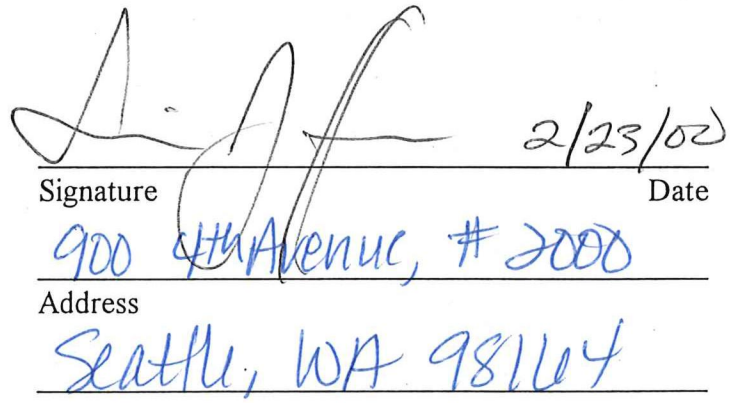 2/23/00
Signature Date
900 4th Avenue, # 2000
Address
Seattle, WA 98164